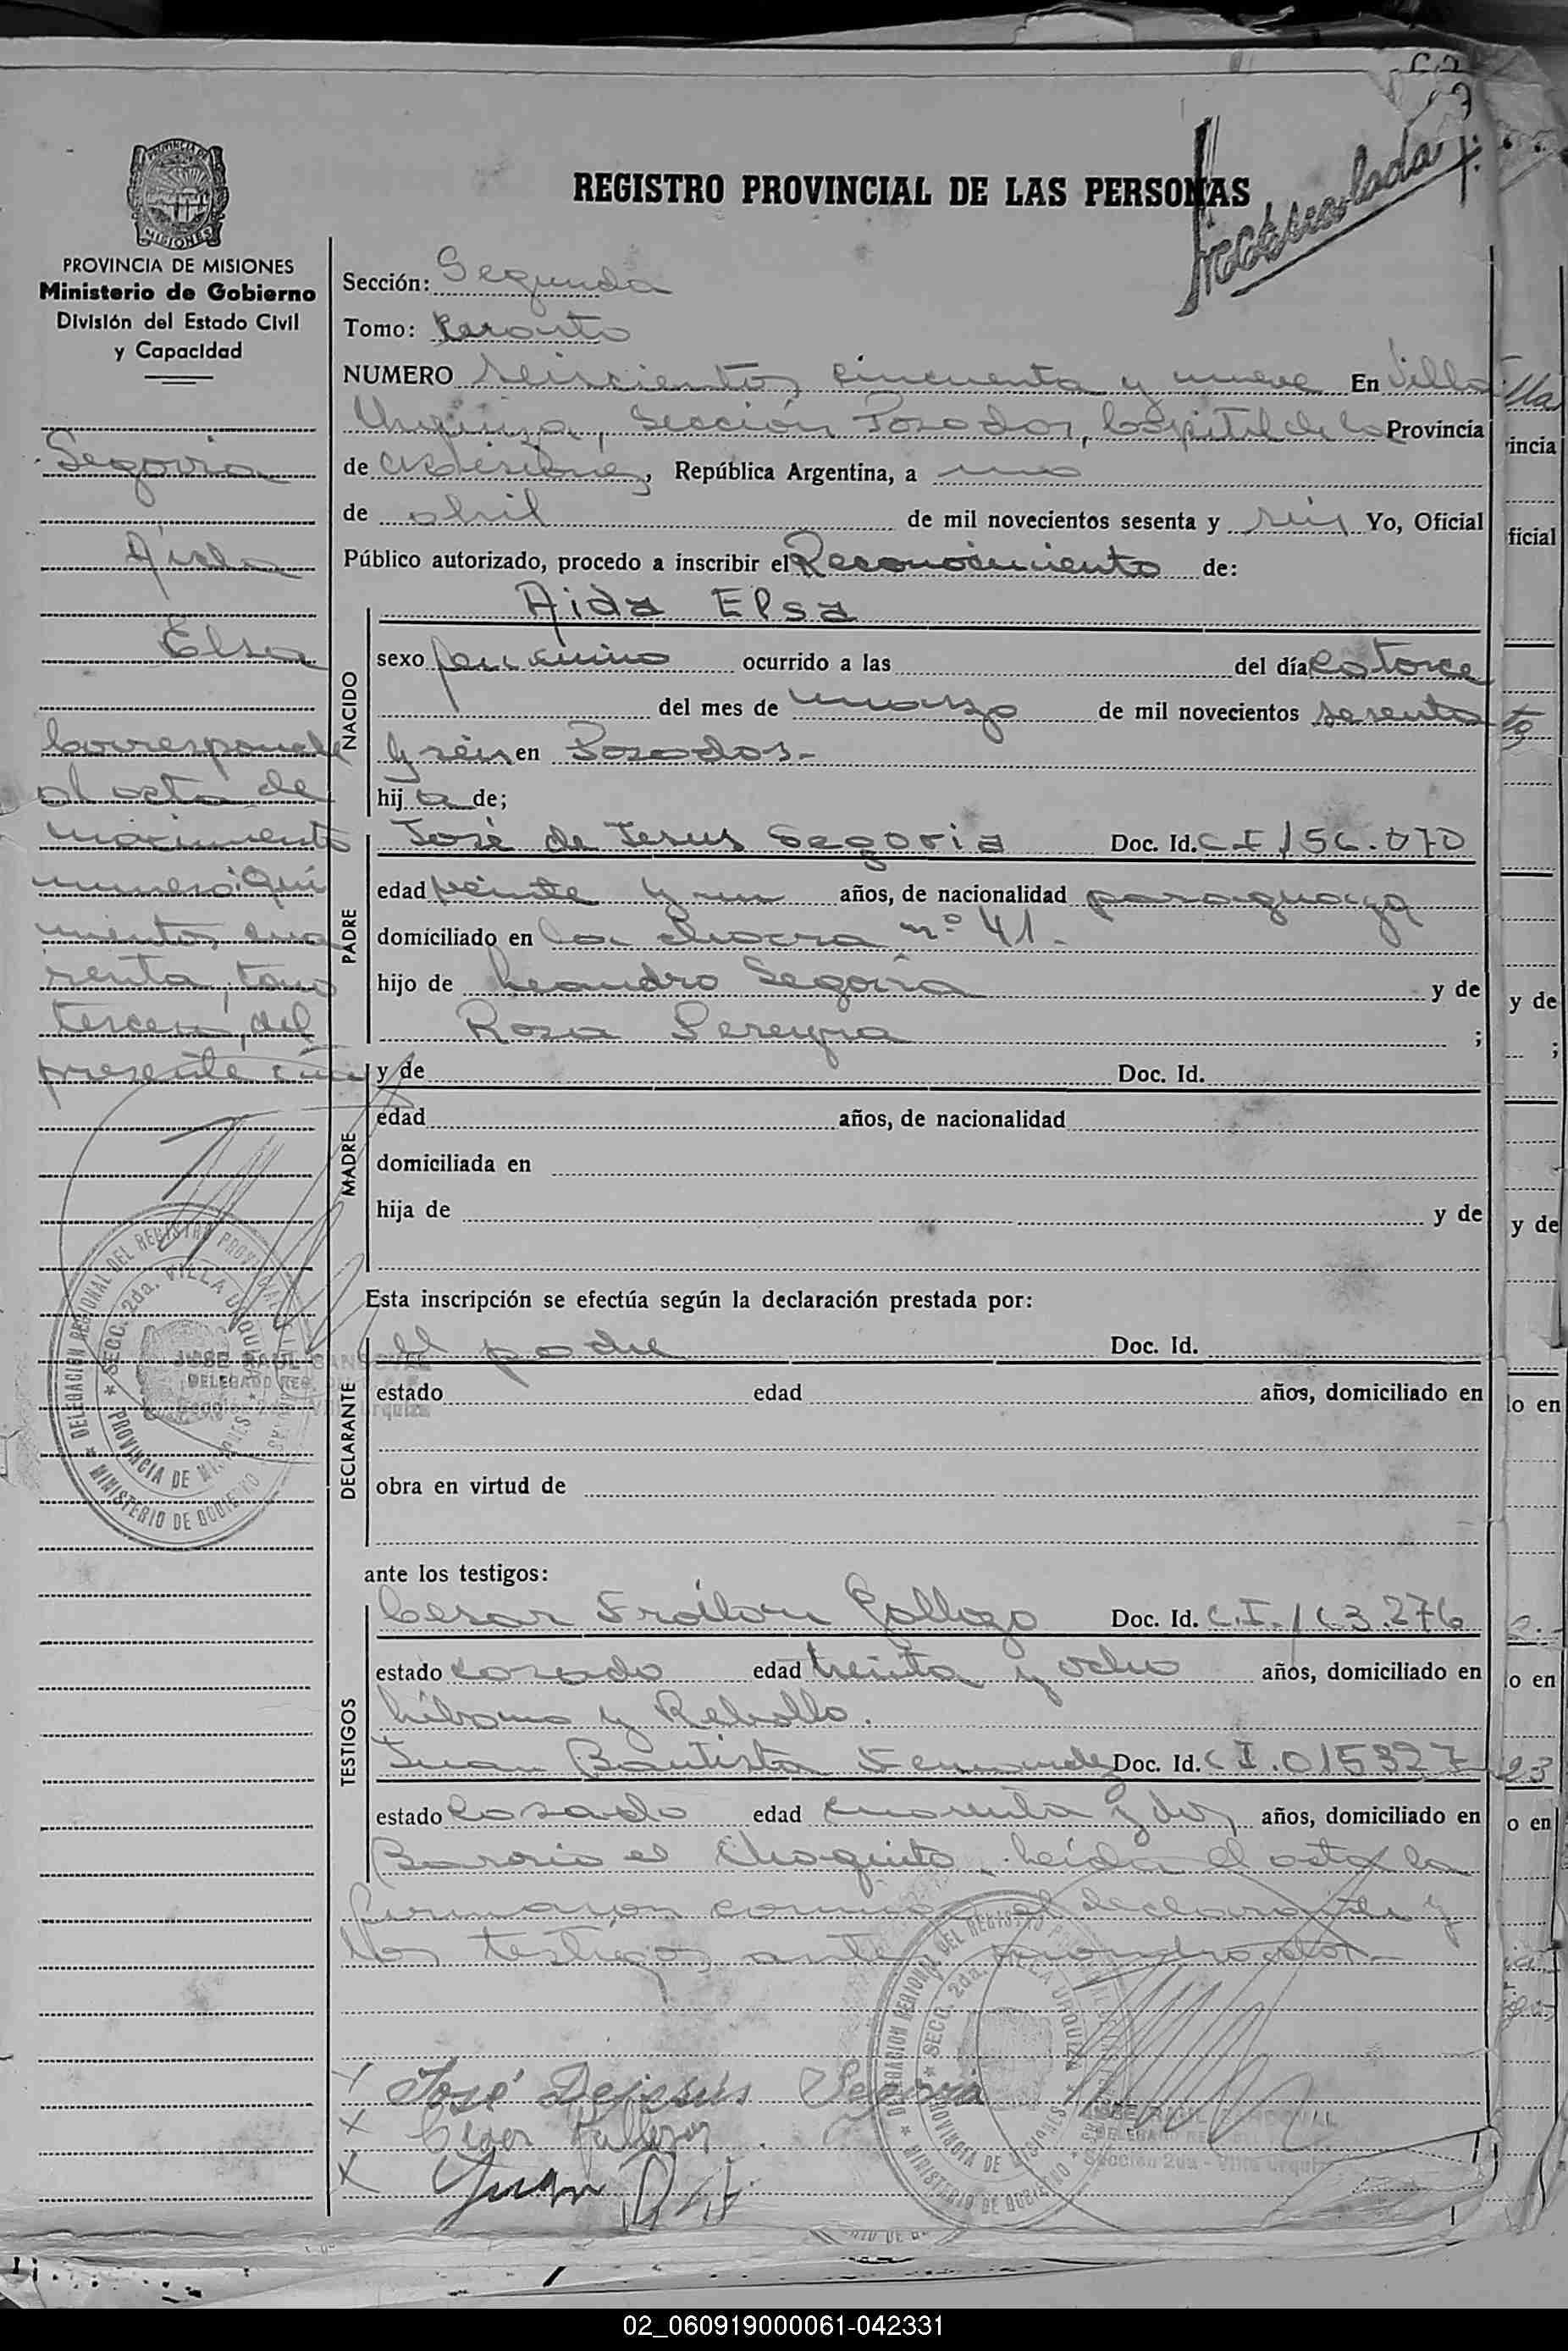 REGISTRO PROVINCIAL DE LAS PERSONAS
PROVINCIA DE MISIONES
Ministerio de Gobierno
División del Estado Civil
y Capacidad
Segovia
Aida
Elsa
Corresponde
al acta de
nacimiento
numero: Qui
nientos, cua
renta, tomo
tercero, del
presente año
Sección: Segunda
Tomo: Cuarto
NUMERO seiscientos cincuenta y nueve En Villa
Urquiza, Sección Posadas, Capital de la Provincia
de Misiones, República Argentina, a uno
de abril de mil novecientos sesenta y seis Yo, Oficial
Público autorizado, procedo a inscribir el Reconocimiento de:
NACIDO
Aida Elsa
sexo femenino ocurrido a las del día catorce
del mes de marzo de mil novecientos sesenta
y seis en Posadas.-
hij a de;
PADRE
José de Jesus Segovia Doc. Id. C I 156.070
edad veinte y un años, de nacionalidad paraguaya
domiciliado en la chacra nº 41.-
hijo de Leandro Segovia y de
Rosa Pereyra ;
MADRE
y de Doc. Id.
edad años, de nacionalidad
domiciliada en
hija de y de
Esta inscripción se efectúa según la declaración prestada por:
DECLARANTE
el padre Doc. Id.
estado edad años, domiciliado en
obra en virtud de
ante los testigos:
TESTIGOS
Cesar Froilan Gallego Doc. Id. C.I. 276
estado casado edad treinta y ocho años, domiciliado en
Líbano y Rebollo.
Juan Bautista Fernandez Doc. Id. C I. 015327
estado casado edad cuarenta y dos años, domiciliado en
Barrio el Chaquito. Leída el acta la
firmaron conmigo el declarante y
los testigos ante
José Dejesús Segovia
Cesar Gallego
Juan
DELEGACION REGIONAL DEL REGISTRO PROVINCIAL DE LAS PERSONAS
SECC. 2da. VILLA URQUIZA
PROVINCIA DE MISIONES
MINISTERIO DE GOBIERNO
JOSE RAUL SANDOVAL
Sección 2da - Villa Urquiza
02_060919000061-042331